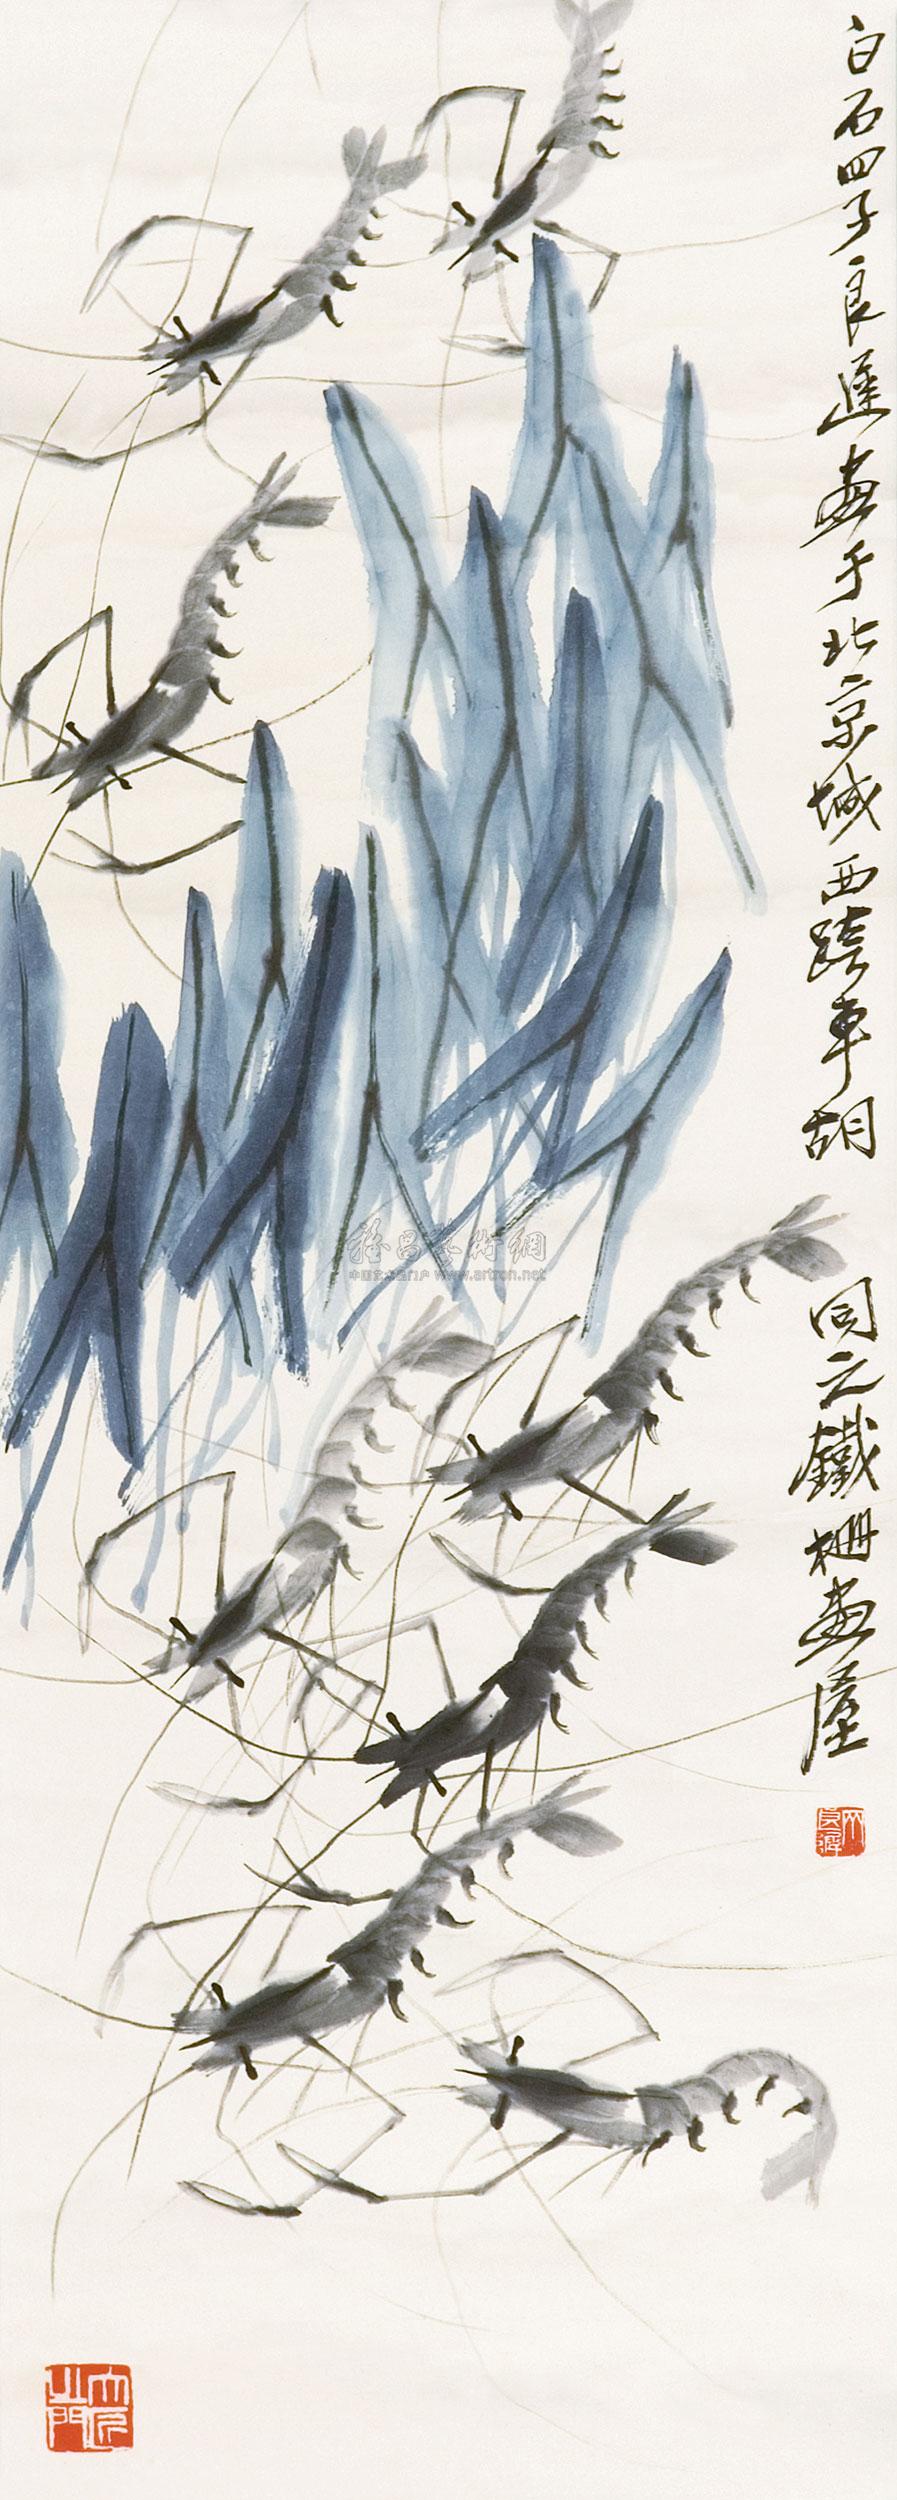 白石四子良遲畫于北京城西跨車胡
同之鐵栅畫屋
雅昌艺術網
中国艺术品门户 www.artron.net
木人之門